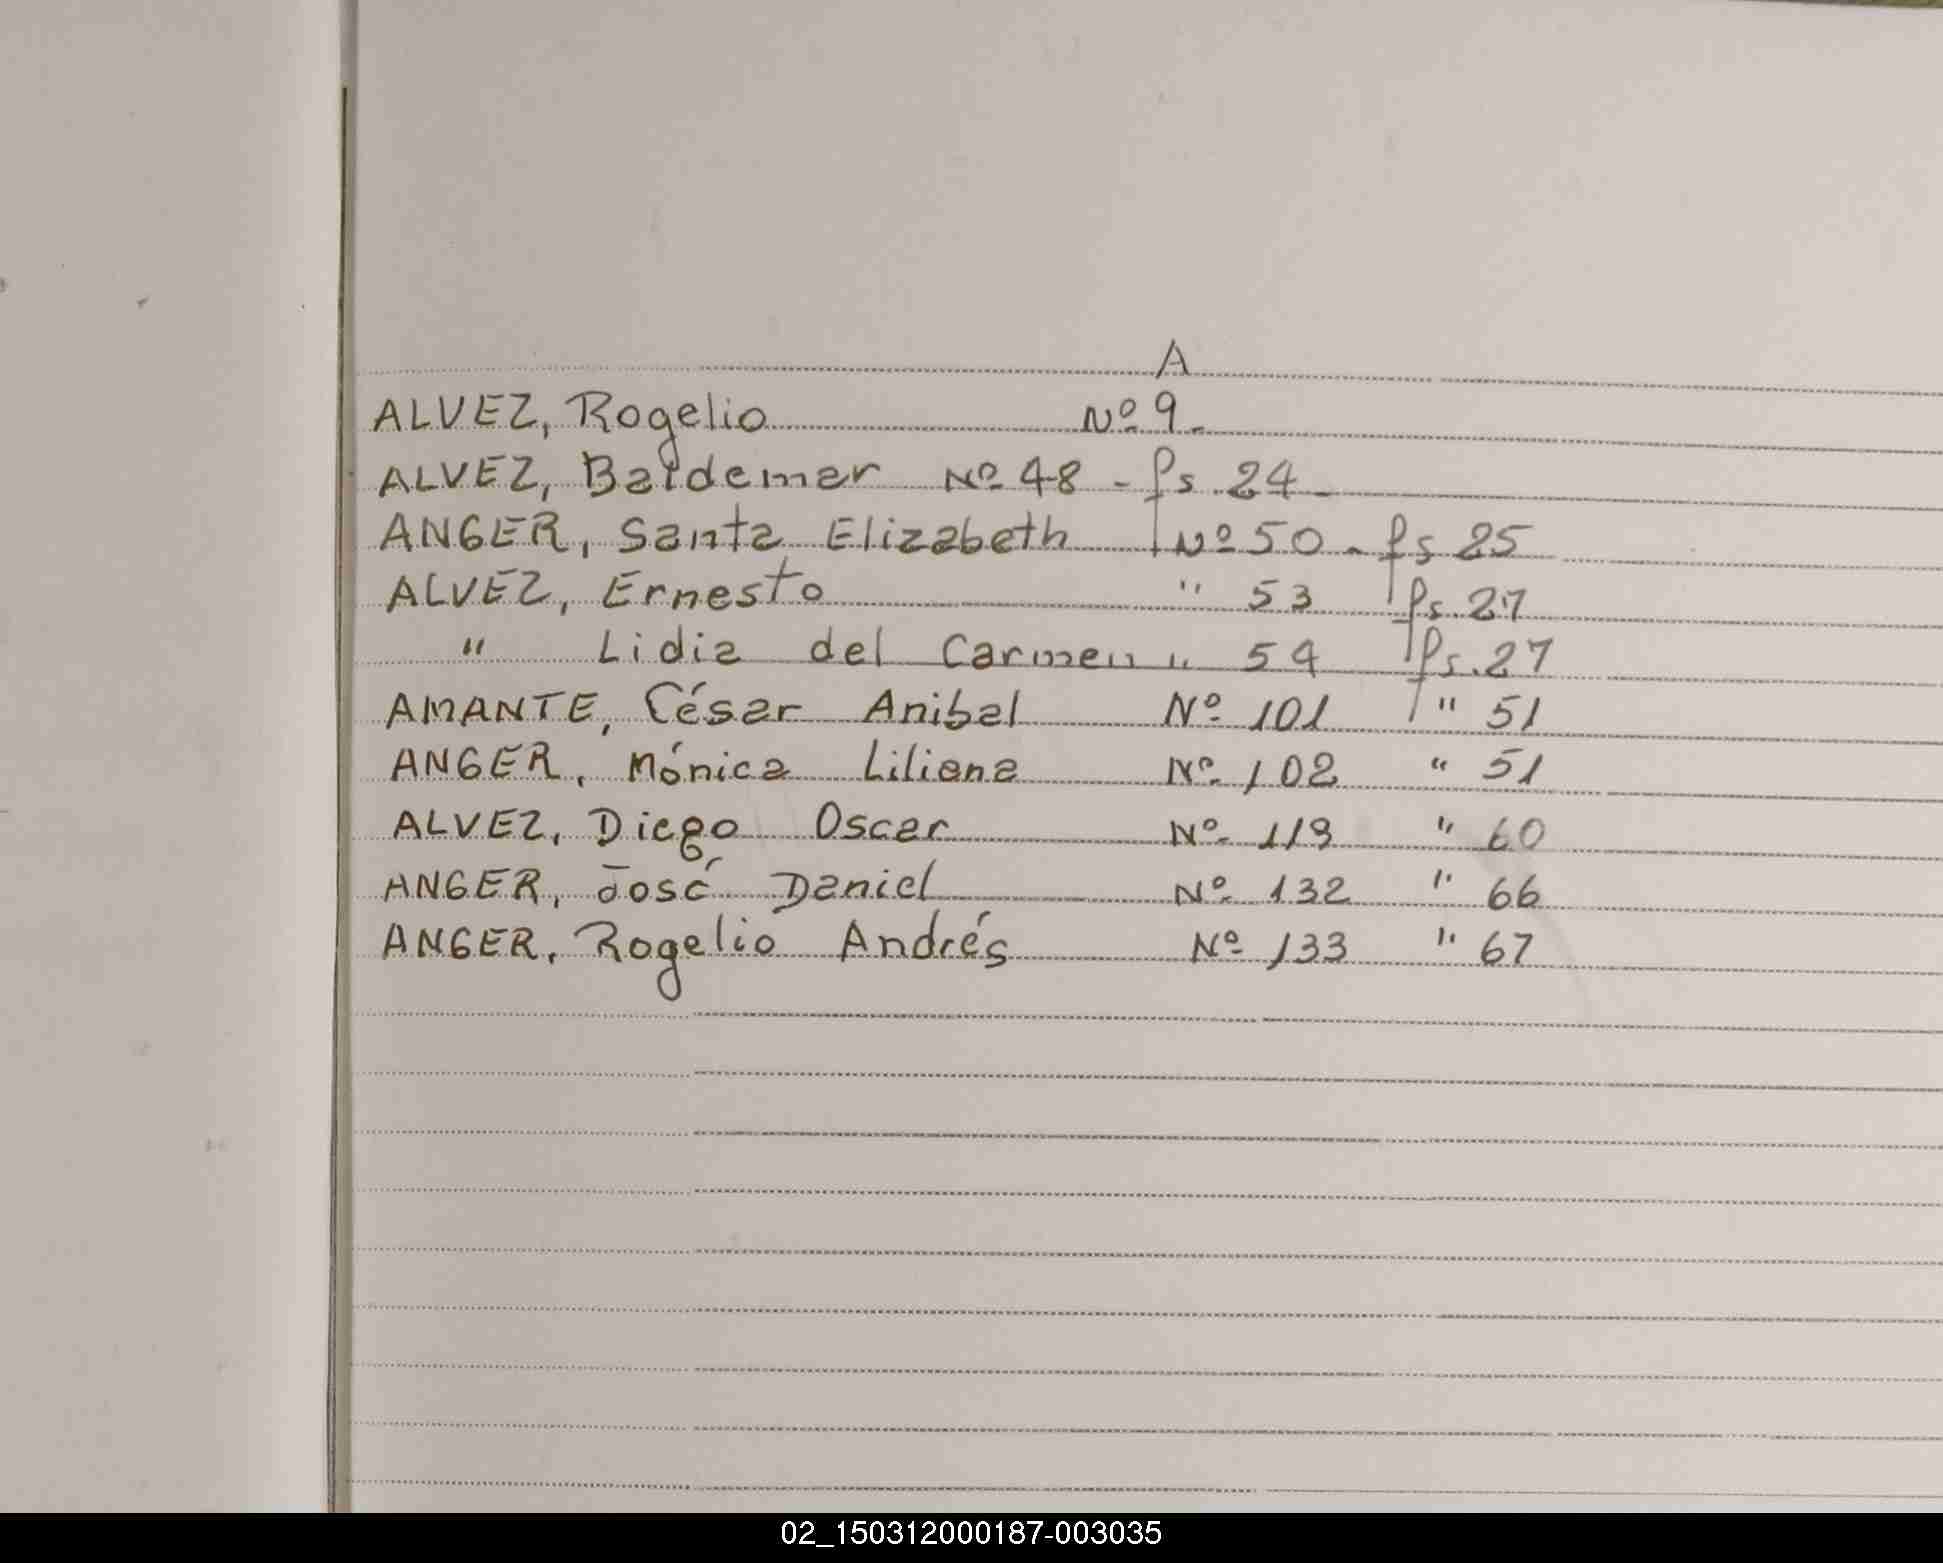 A
ALVEZ, Rogelio Nº 9.
ALVEZ, Baldemar Nº 48 - fs. 24.
ANGER, Santa Elizabeth Nº 50 - fs 25
ALVEZ, Ernesto " 53 fs. 27
" Lidia del Carmen " 54 fs. 27
AMANTE, César Anibal Nº 101 " 51
ANGER, Mónica Liliana Nº 102 " 51
ALVEZ, Diego Oscar Nº 119 " 60
ANGER, José Daniel Nº 132 " 66
ANGER, Rogelio Andrés Nº 133 " 67
02_150312000187-003035